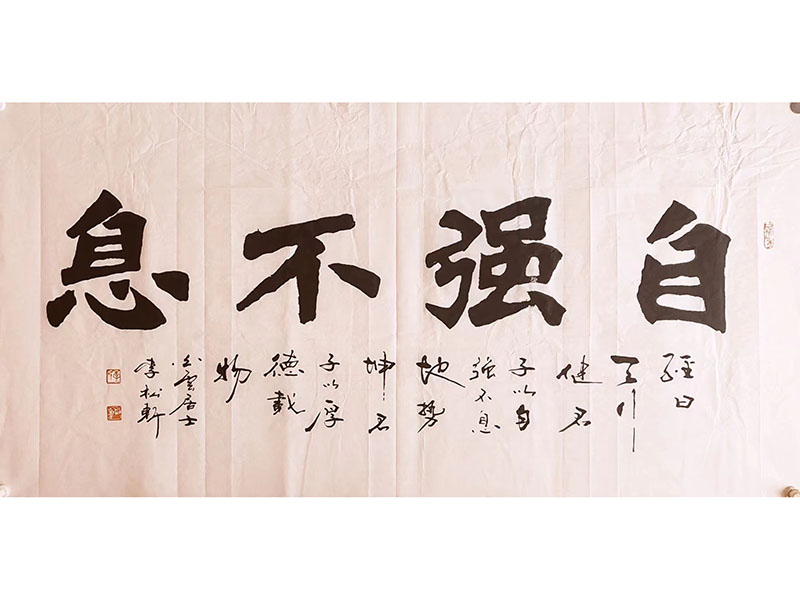 自强不息
经曰
天行
健君
子以自
强不息
地势
坤君
子以厚
德载
物
雲居士
李松軒